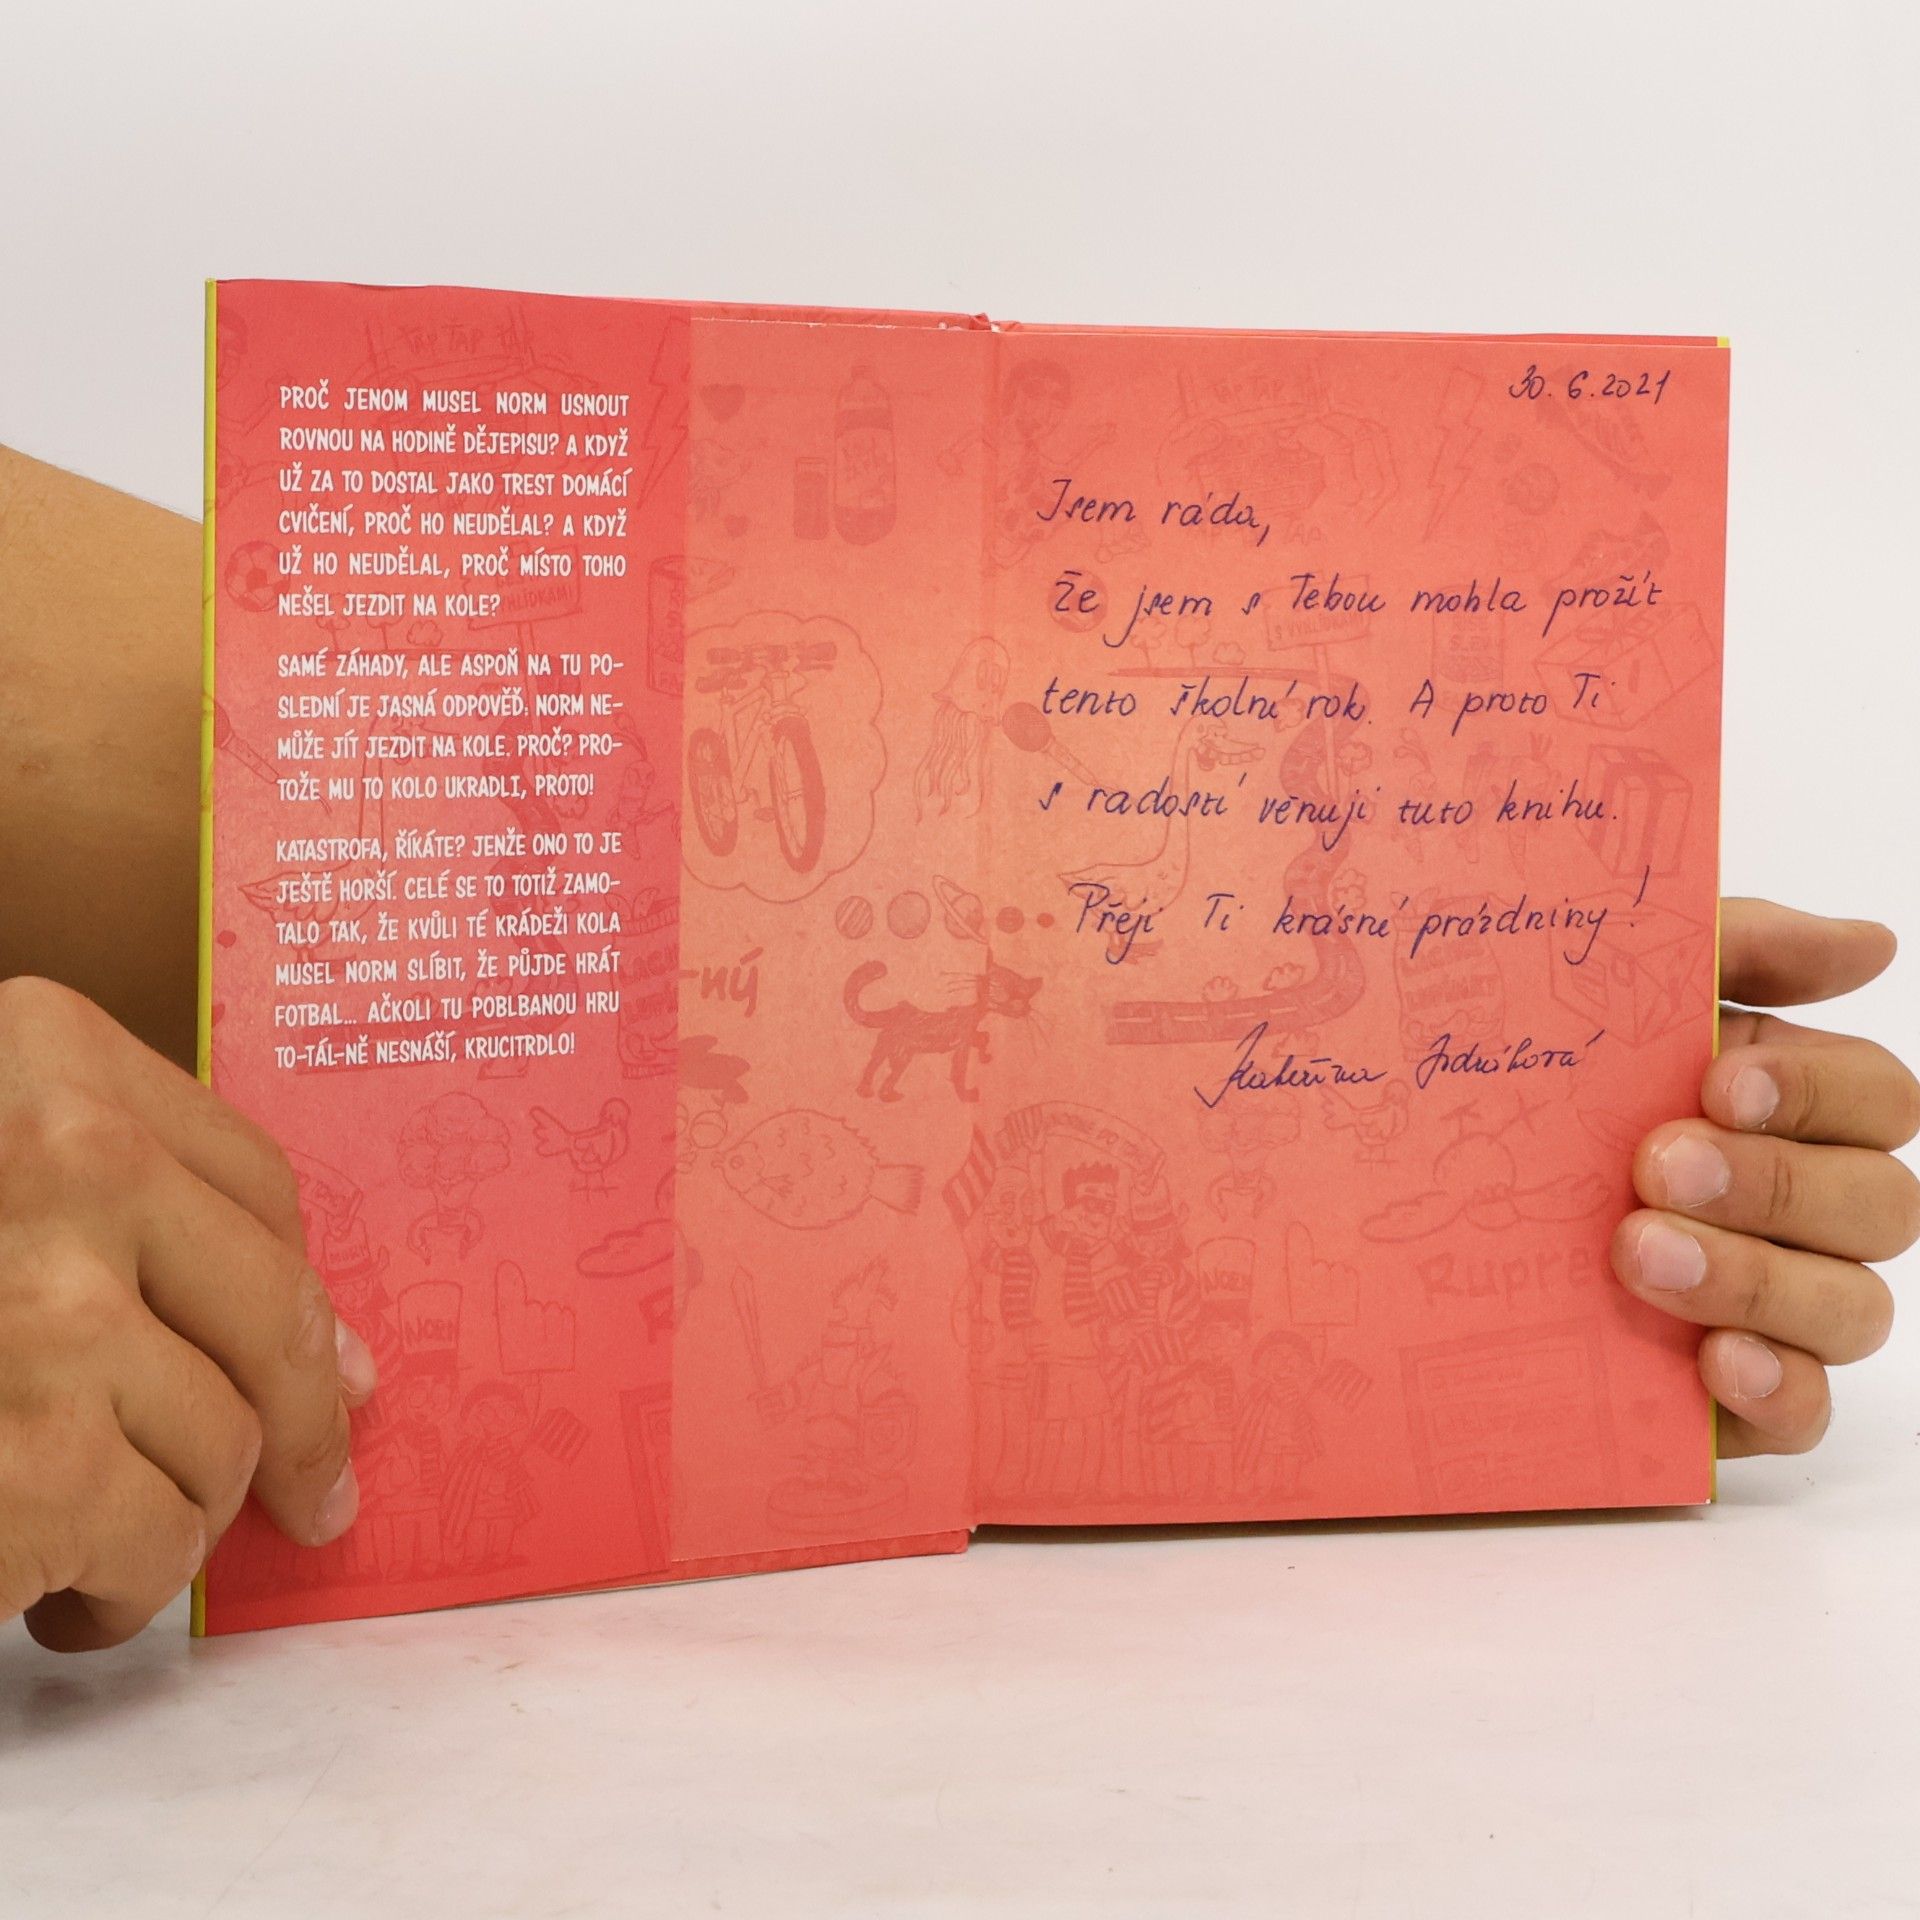 PROČ JENOM MUSEL NORM USNOUT
ROVNOU NA HODINĚ DĚJEPISU? A KDYŽ
UŽ ZA TO DOSTAL JAKO TREST DOMÁCÍ
CVIČENÍ, PROČ HO NEUDĚLAL? A KDYŽ
UŽ HO NEUDĚLAL, PROČ MÍSTO TOHO
NEŠEL JEZDIT NA KOLE?
SAMÉ ZÁHADY, ALE ASPOŇ NA TU PO-
SLEDNÍ JE JASNÁ ODPOVĚĎ: NORM NE-
MŮŽE JÍT JEZDIT NA KOLE. PROČ? PRO-
TOŽE MU TO KOLO UKRADLI, PROTO!
KATASTROFA, ŘÍKÁTE? JENŽE ONO TO JE
JEŠTĚ HORŠÍ. CELÉ SE TO TOTIŽ ZAMO-
TALO TAK, ŽE KVŮLI TÉ KRÁDEŽI KOLA
MUSEL NORM SLÍBIT, ŽE PŮJDE HRÁT
FOTBAL... AČKOLI TU POBLBANOU HRU
TO-TÁL-NĚ NESNÁŠÍ, KRUCITRDLO!
ŤAP ŤAP ŤAP
NORM
30. 6. 2021
Jsem ráda,
že jsem s Tebou mohla prožít
tento školní rok. A proto Ti
s radostí věnuji tuto knihu.
Přeji Ti krásné prázdniny!
Kateřina
ŤAP ŤAP ŤAP
S VYHLÍDKAMI
NORM